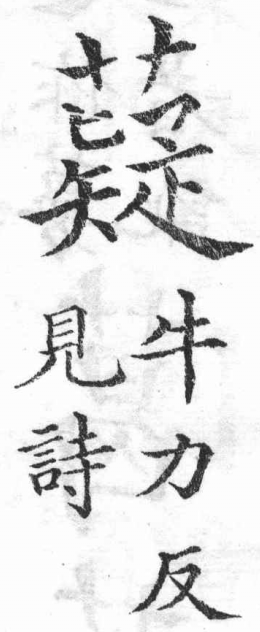 薿
牛力反
見詩